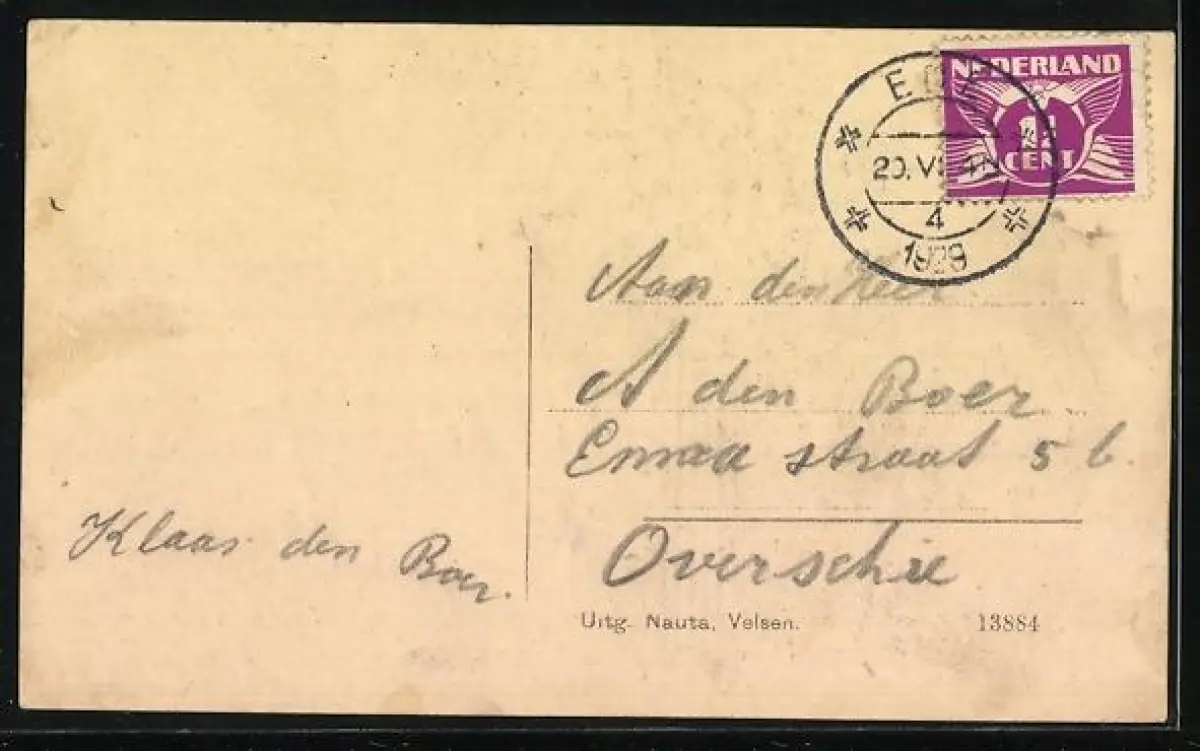 NEDERLAND
1½
CENT
EDE
20.VI
4
1929
Aan den Heer
A den Boer
Emma straat 5 b.
Overschie
Klaas den Boer.
Uitg. Nauta, Velsen.
13884